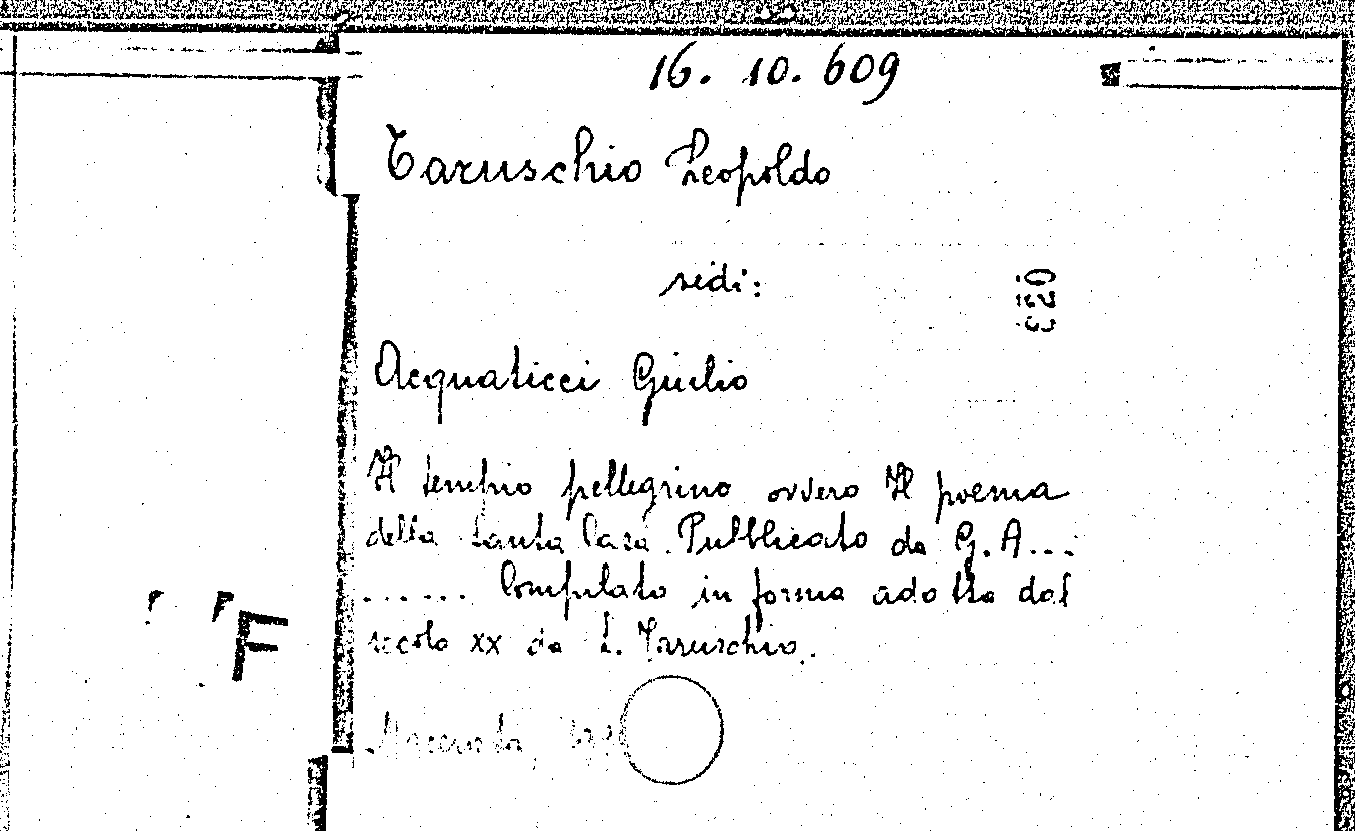 16. 10. 609
Taruschio Leopoldo
vedi:
053
Acquaticci Giulio
Il tempio pellegrino ovvero Il poema
della Santa Casa. Pubblicato da G. A...
...... Compilato in forma adatta dal
secolo XX da L. Taruschio.
Macerata,
F